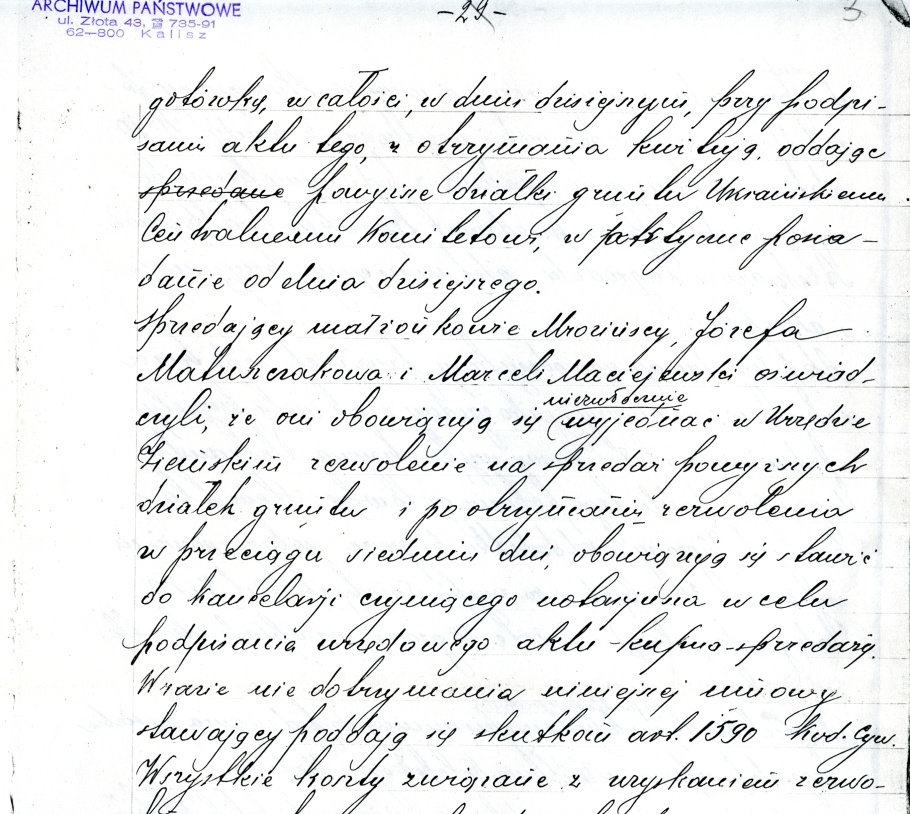 ARCHIWUM PAŃSTWOWE
ul. Złota 43, ☎ 735-91
62-800 Kalisz
-29-
3
gotówką, w całości, w dniu dzisiejszym, przy podpi-
saniu aktu tego, z otrzymania kwitują, oddając
sprzedane powyższe działki gruntu Ukraińskiemu
Centralnemu Komitetowi, w faktyczne posia-
danie od dnia dzisiejszego.
Sprzedający małżonkowie Mrozińscy, Józefa
Maturzakowa i Marceli Maciejewski oświad-
czyli, że oni obowiązują się
niezwłocznie
wyjednać w Urzędzie
Ziemskim zezwolenie na sprzedaż powyższych
działek gruntu i po otrzymaniu zezwolenia
w przeciągu siedmiu dni, obowiązują się stawić
do kancelarji czyniącego notarjusza w celu
podpisania urzędowego aktu kupna-sprzedaży.
W razie nie dotrzymania niniejszej umowy
stawający poddają się skutkom art. 1590 Kod. Cyw.
Wszystkie koszty związane z uzyskaniem zezwo-